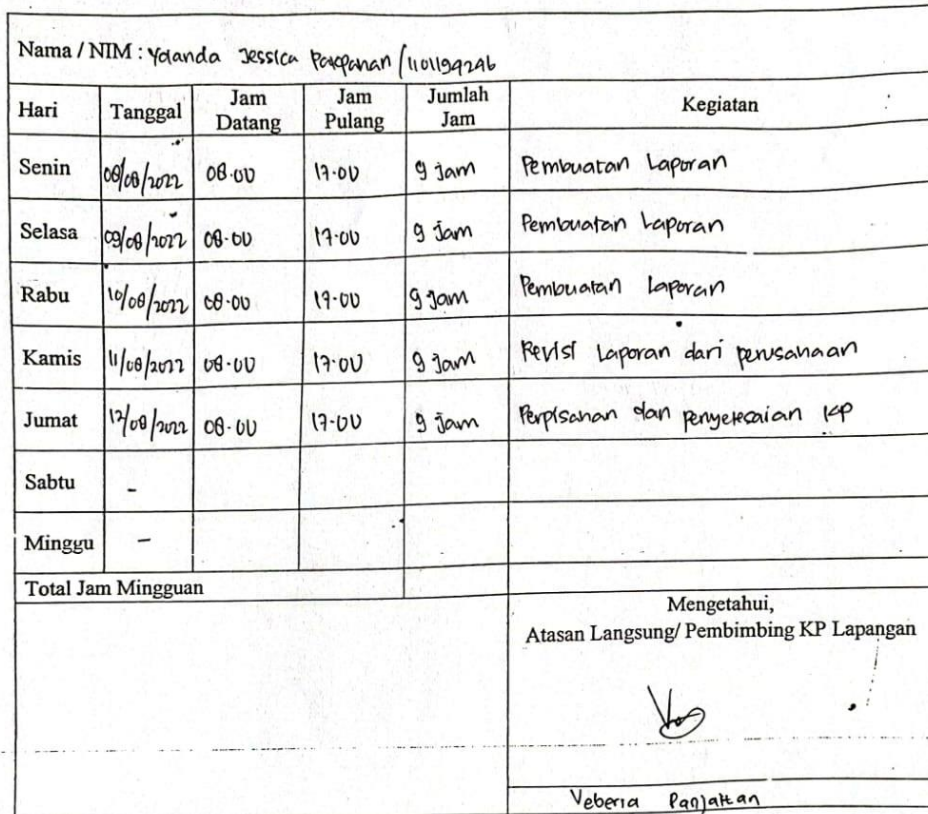 Nama / NIM : Yolanda Jessica Parapanan / 1101194246
Hari Tanggal Jam Datang Jam Pulang Jumlah Jam Kegiatan
Senin 08/08/2022 08.00 17.00 9 Jam Pembuatan Laporan
Selasa 09/08/2022 08.00 17.00 9 Jam Pembuatan Laporan
Rabu 10/08/2022 08.00 17.00 9 Jam Pembuatan Laporan
Kamis 11/08/2022 08.00 17.00 9 Jam Revisi Laporan dari perusahaan
Jumat 12/08/2022 08.00 17.00 9 Jam Perpisahan dan penyelesaian KP
Sabtu -
Minggu -
Total Jam Mingguan
Mengetahui,
Atasan Langsung/ Pembimbing KP Lapangan
Veberia Panjaitan